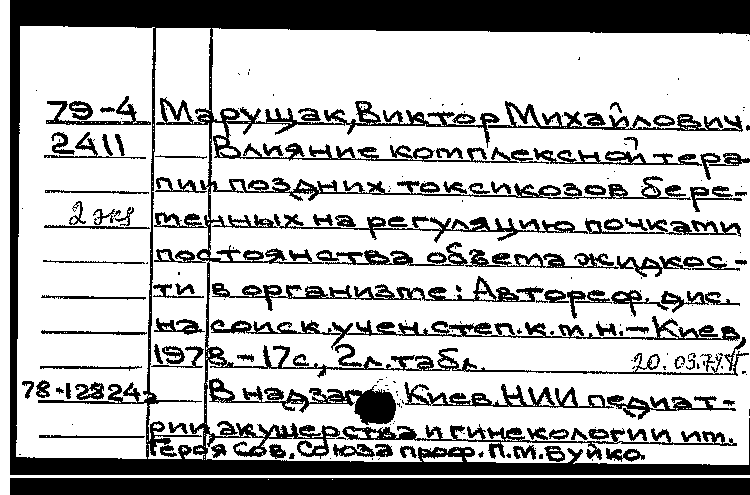 79-4 Марущак, Виктор Михайлович.
2411 Влияние комплексной тера-
пии поздних токсикозов бере-
2 экз менных на регуляцию почками
постоянства объема жидкос-
ти в организме: Автореф. дис.
на соиск. учен. степ. к. м. н. - Киев,
1978. - 17с., 2л. табл. 20.03.79.
78-12824а В надзаг.: Киев. НИИ педиат-
рии, акушерства и гинекологии им.
Героя Сов. Союза проф. П.М. Буйко.